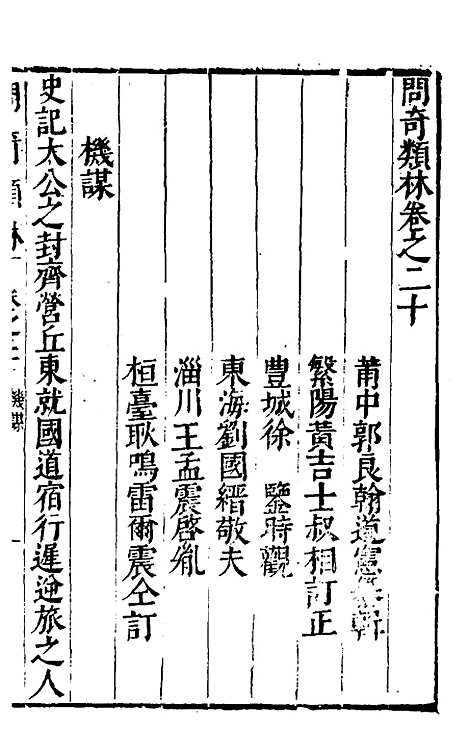 問奇類林卷之二十
莆中郭良翰道憲纂輯
繁陽黃吉士叔相訂正
豐城徐　鑒時觀
東海劉國縉敬夫
淄川王孟震啓胤
桓臺耿鳴雷爾震仝訂
機謀
史記太公之封齊營丘東就國道宿行遲逆旅之人
問奇類林 卷之二十 機謀 一